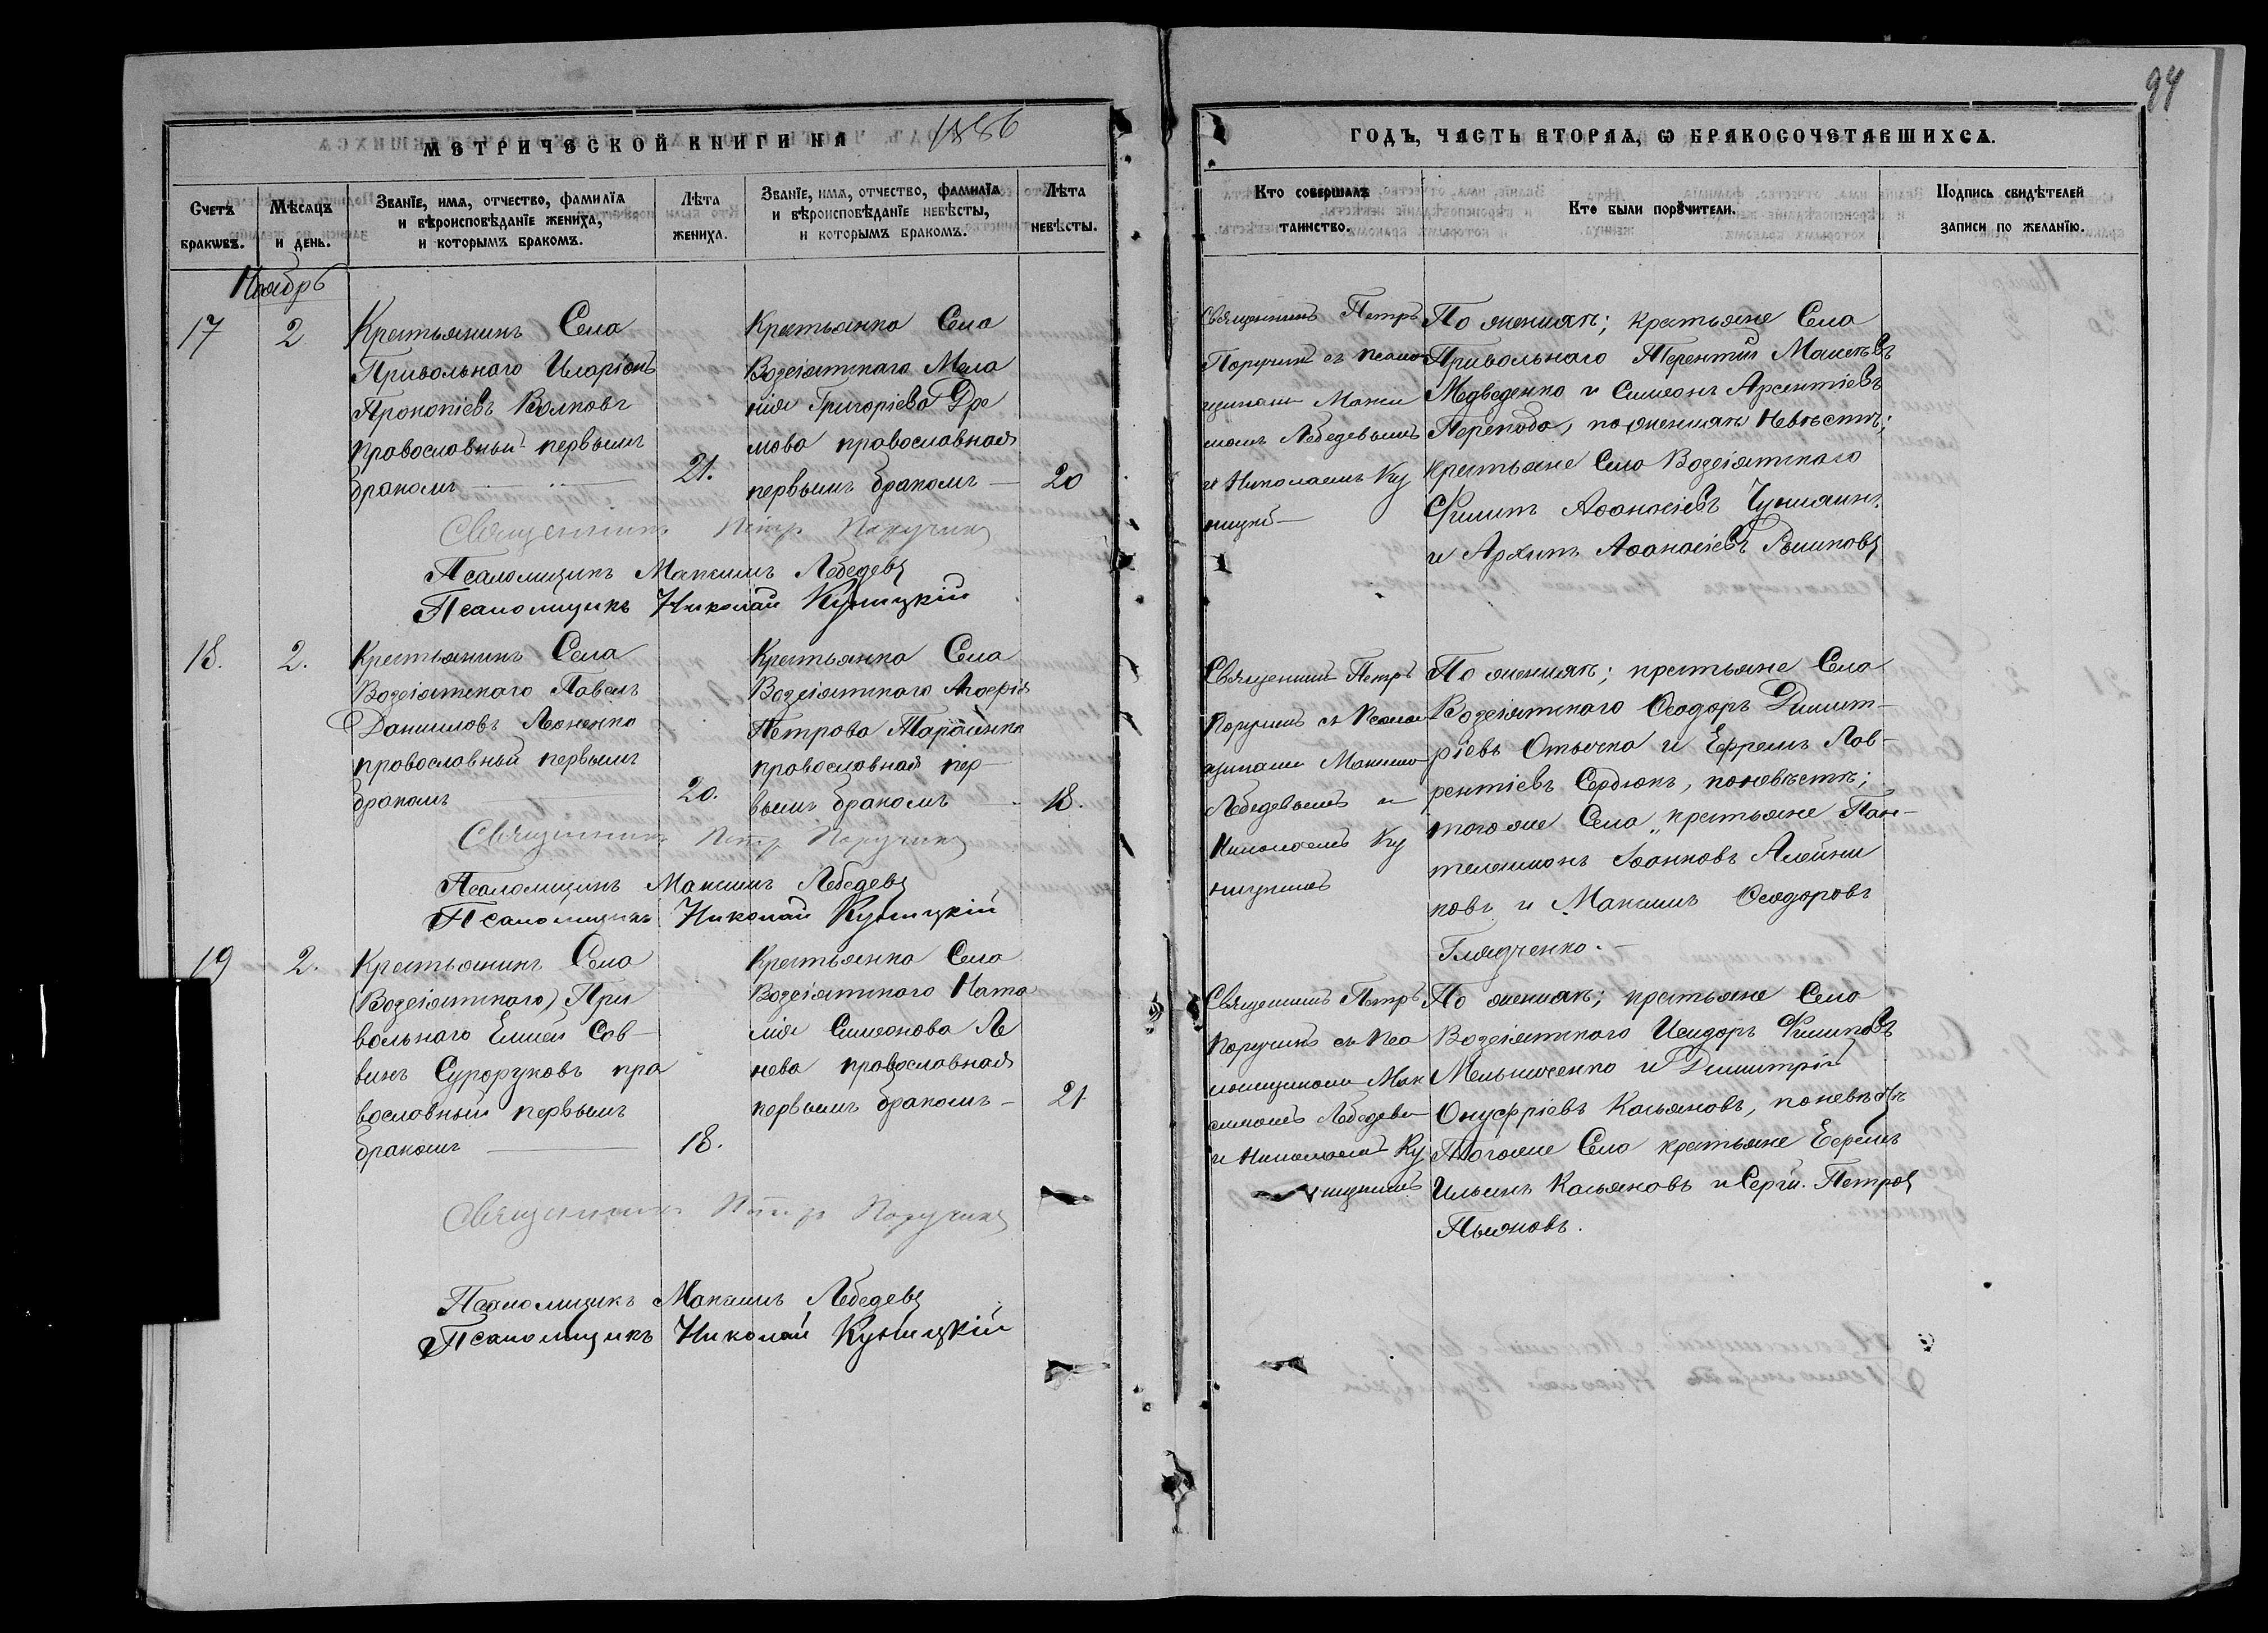 94
МЕТРИЧЕСКОЙ КНИГИ НА 1886
ГОДЪ, ЧАСТЬ ВТОРАЯ, Ѡ БРАКОСОЧЕТАВШИХСЯ.
Счетъ браковъ.
Мѣсяцъ и день.
Званїе, имя, отчество, фамилїя
и вѣроисповѣданїе жениха,
и которымъ бракомъ.
Лѣта
жениха.
Званїе, имя, отчество, фамилїя
и вѣроисповѣданїе невѣсты,
и которымъ бракомъ.
Лѣта
невѣсты.
Кто совершалъ
таинство.
Кто были порꙋчители.
Подпись свидѣтелей
записи по желанїю.
Ноябрь
17
2
Крестьянинъ Села
Привольнаго Иларіонъ
Прокопіевъ Волковъ
православный первымъ
бракомъ
21.
Крестьянка Села
Возсіятскаго Мела
нія Григоріева
мова православная
первымъ бракомъ
20
Священникъ Петръ
Поручикъ съ псалом
щиками Макси
момъ Лебедевымъ
и Николаемъ Ку
ницкі
По женихѣ; крестьяне Села
Привольнаго Терентій
Медведенко и Симеонъ Арсентіевъ
по женихѣ Невѣстѣ;
крестьяне Села Возсіятскаго
Филипъ Аѳонасіевъ
и Архипъ Аѳонасіевъ
Священникъ Петръ Поручикъ
Псаломщикъ Максимъ Лебедевъ
Псаломщикъ Николай Куницкій
18.
2.
Крестьянинъ Села
Возсіятскаго Павелъ
Данииловъ Леоненко
православный первымъ
бракомъ
20.
Крестьянка Села
Возсіятскаго
Петрова Тарасенко
православная пер
вымъ бракомъ
18.
Священникъ Петръ
Поручикъ съ Псалом
щиками Максимо
Лебедевымъ и
Николаемъ Ку
ницкимъ
По женихѣ; крестьяне Села
Возсіятскаго Ѳеодоръ Димит-
ріевъ и Ефремъ Лав-
рентіевъ Сердюкъ, по невѣстѣ;
того же Села крестьяне Пан-
телеимонъ Іоанновъ Алейни
ковъ и Максимъ Ѳеодоровъ
Гладченко.
Священникъ Петръ Поручикъ
Псаломщикъ Максимъ Лебедевъ
Псаломщикъ Николай Куницкій
19
2.
Крестьянинъ Села
(Возсіятскаго) При
вольнаго Елисей Сав-
винъ Суроруковъ пра
вославный первымъ
бракомъ
18.
Крестьянка Села
Возсіятскаго Ната
лія Симеонова Ле
нева православная
первымъ бракомъ
21
Священникъ Петръ
Поручикъ съ Пса
ломщиками Мак
симомъ Лебедевы
и Николаемъ Ку
ницкимъ
По женихѣ; крестьяне Села
Возсіятскаго Исидоръ Филиповъ
Мельниченко и Димитрій
Онуфріевъ Касьяновъ, по невѣстѣ
Тогоже Села крестьяне Ефремъ
Ильинъ Касьяновъ и Сергій Петровъ
Пьяновъ.
Священникъ Петръ Поручикъ
Псаломщикъ Максимъ Лебедевъ
Псаломщикъ Николай Куницкій